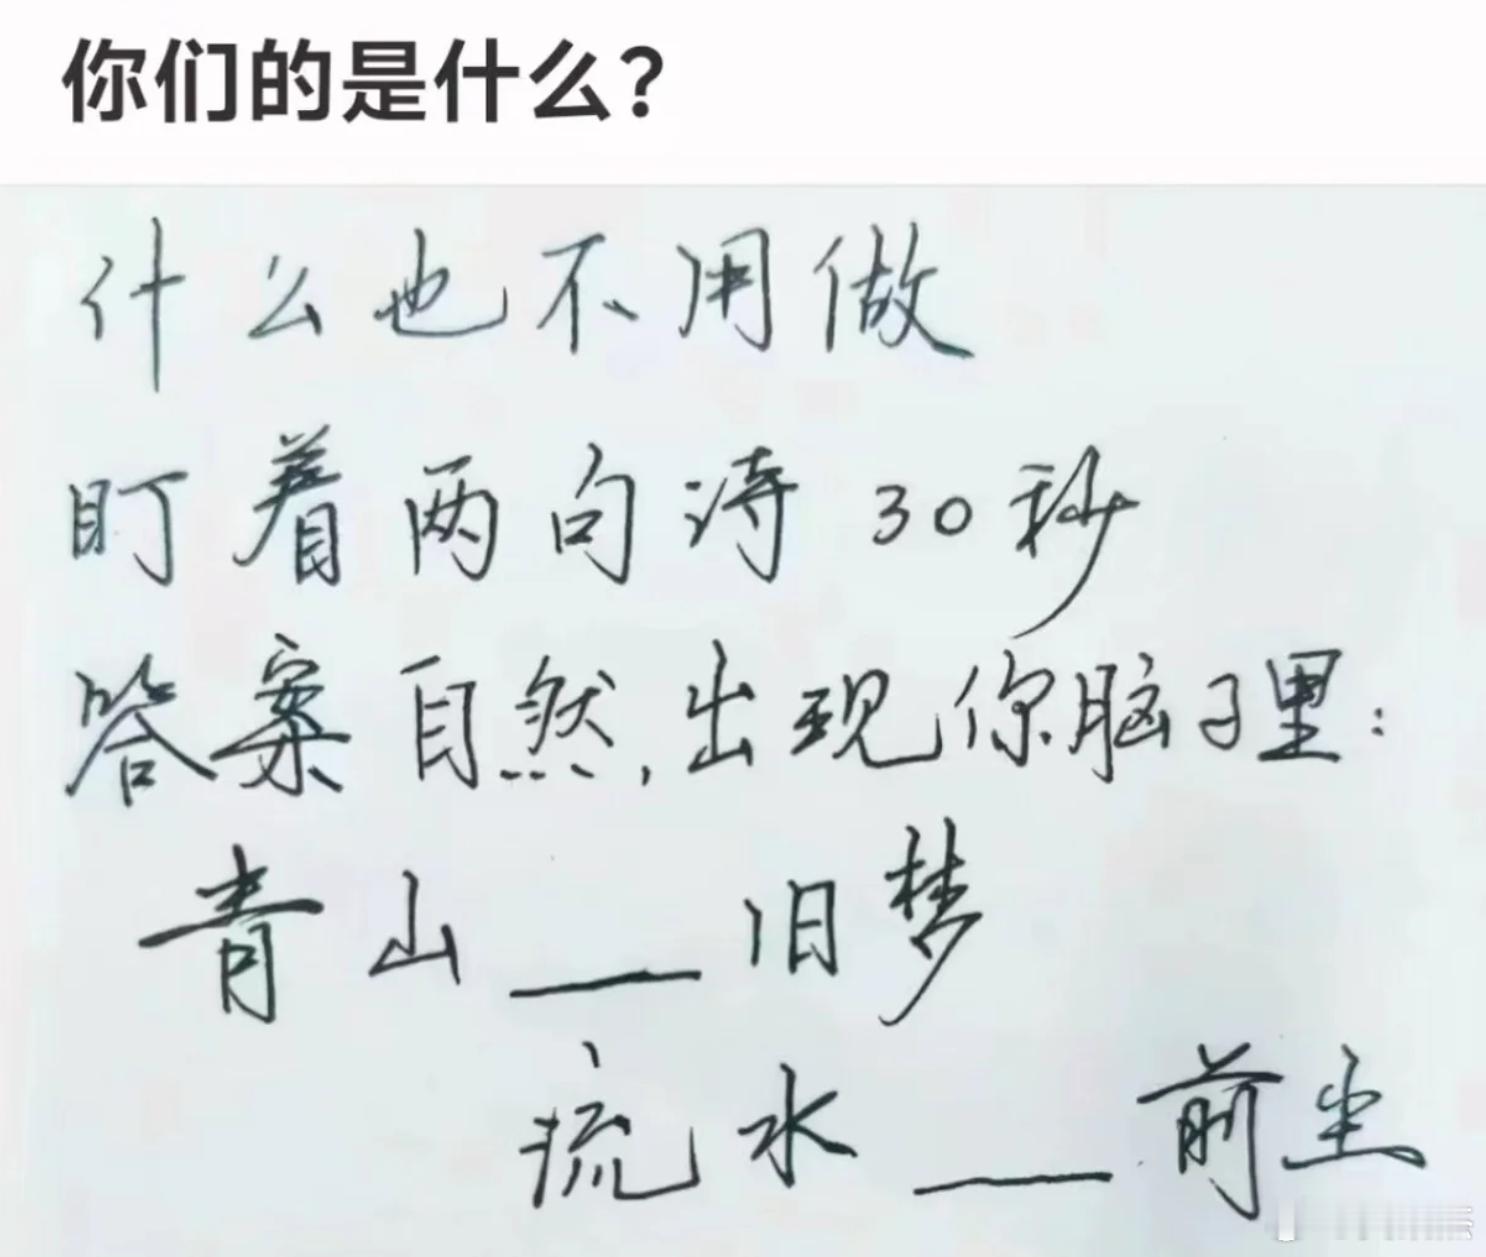 你们的是什么?
什么也不用做
盯着两句诗30秒
答案自然,出现你脑子里:
青山___旧梦
流水___前尘